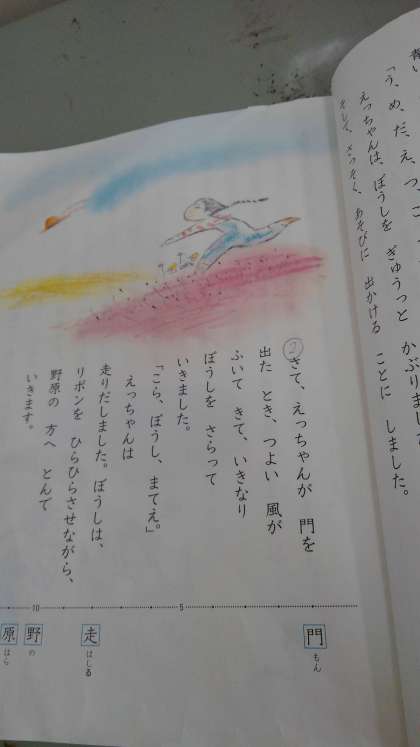 「う、め、だ、え、つ、こ
えっちゃんは、ぼうしを ぎゅうっと かぶりまし
そして、さっそく、あそびに 出かける ことに しました。
②さて、えっちゃんが 門を
出た とき、つよい 風が
ふいて きて、いきなり
ぼうしを さらって
いきました。
「こら、ぼうし、まてえ。」
えっちゃんは
走りだしました。ぼうしは、
リボンを ひらひらさせながら、
野原の 方へ とんで
いきます。
5
10
門 もん
走 はしる
野 の
原 はら